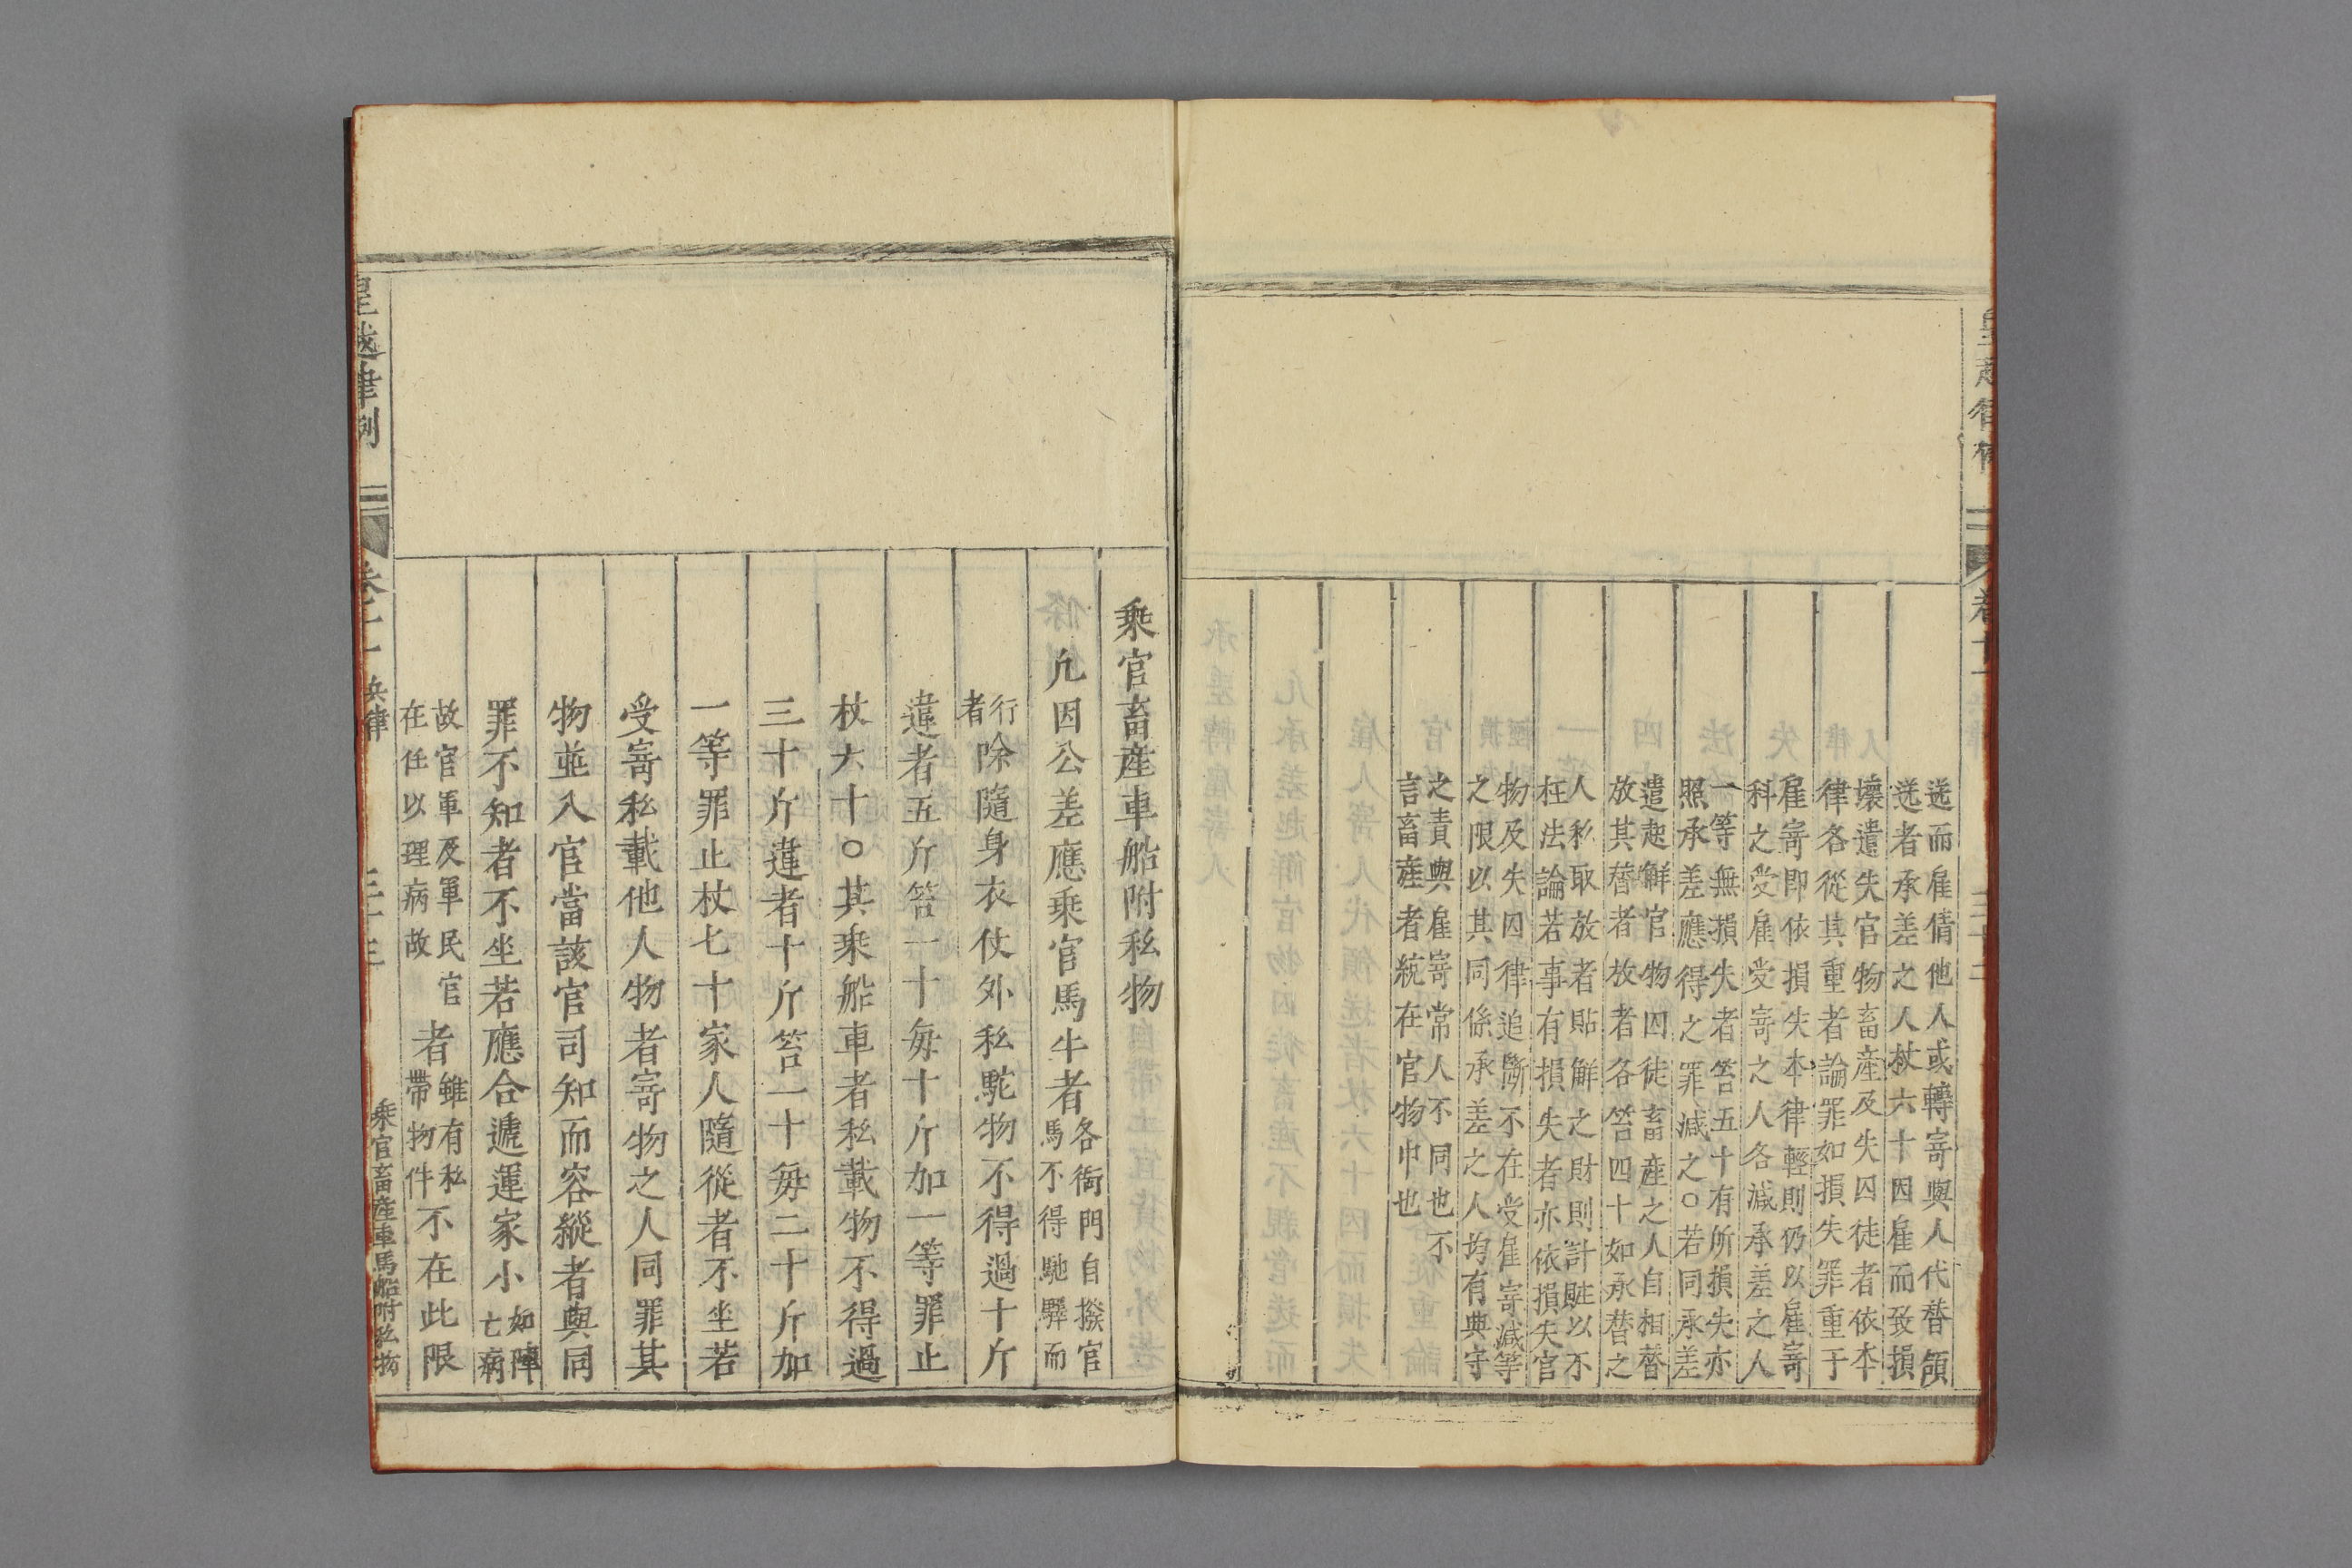 送而雇倩他人或轉寄與人代替領
送者承差之人杖六十因雇而致損
壞遣失官物畜產及失囚徒者依本
律各從其重者論罪如損失罪重于
雇寄即依損失本律輕則仍以雇寄
科之受雇受寄之人各減承差之人
一等無損失者笞五十有所損失亦
照承差應得之罪減之○若同承差
遣起解官物囚徒畜產之人自相替
放其替者放者各笞四十如承替之
人私取放者貼解之財則計贓以不
枉法論若事有損失者亦依損失官
物及失囚律追斷不在受雇寄減等
之限以其同係承差之人均有典守
之責與雇寄常人不同也不
言畜產者統在官物中也
乘官畜產車船附私物
凡因公差應乘官馬牛者各衙門自撥官
馬不得馳驛而
行
者除隨身衣仗外私駝物不得過十斤
違者五斤笞一十每十斤加一等罪止
杖六十○其乘船車者私載物不得過
三十斤違者十斤笞一十每二十斤加
一等罪止杖七十家人隨從者不坐若
受寄私載他人物者寄物之人同罪其
物並入官當該官司知而容縱者與同
罪不知者不坐若應合遞運家小如陣
亡病
故官軍及軍民官
在任以理病故者雖有私
帶物件不在此限
皇越律例 卷十一 兵律 三十三 乘官畜產車馬船附私物